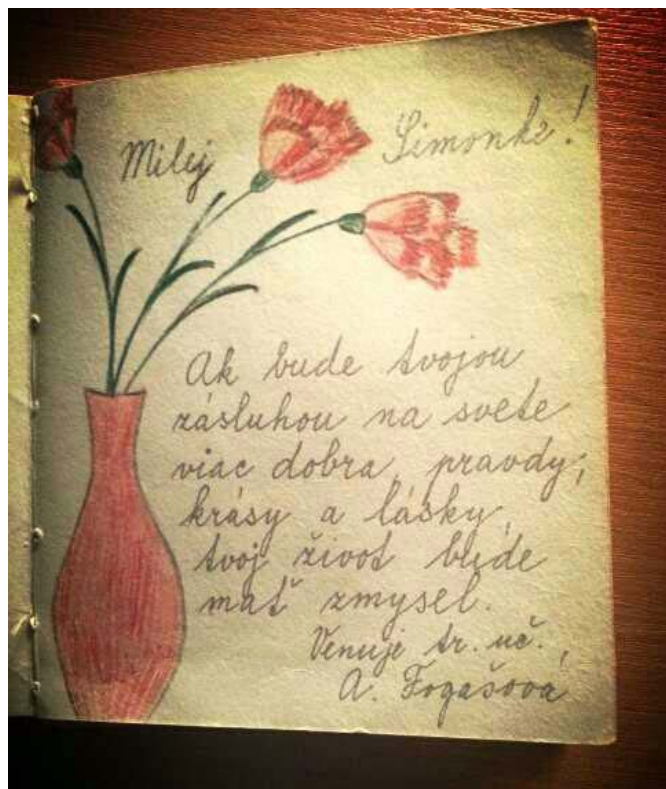 Milej Simonke!
Ak bude tvojou
zásluhou na svete
viac dobra, pravdy,
krásy a lásky,
tvoj život bude
mať zmysel.
Venuje tr. uč.,
A. Fogašová